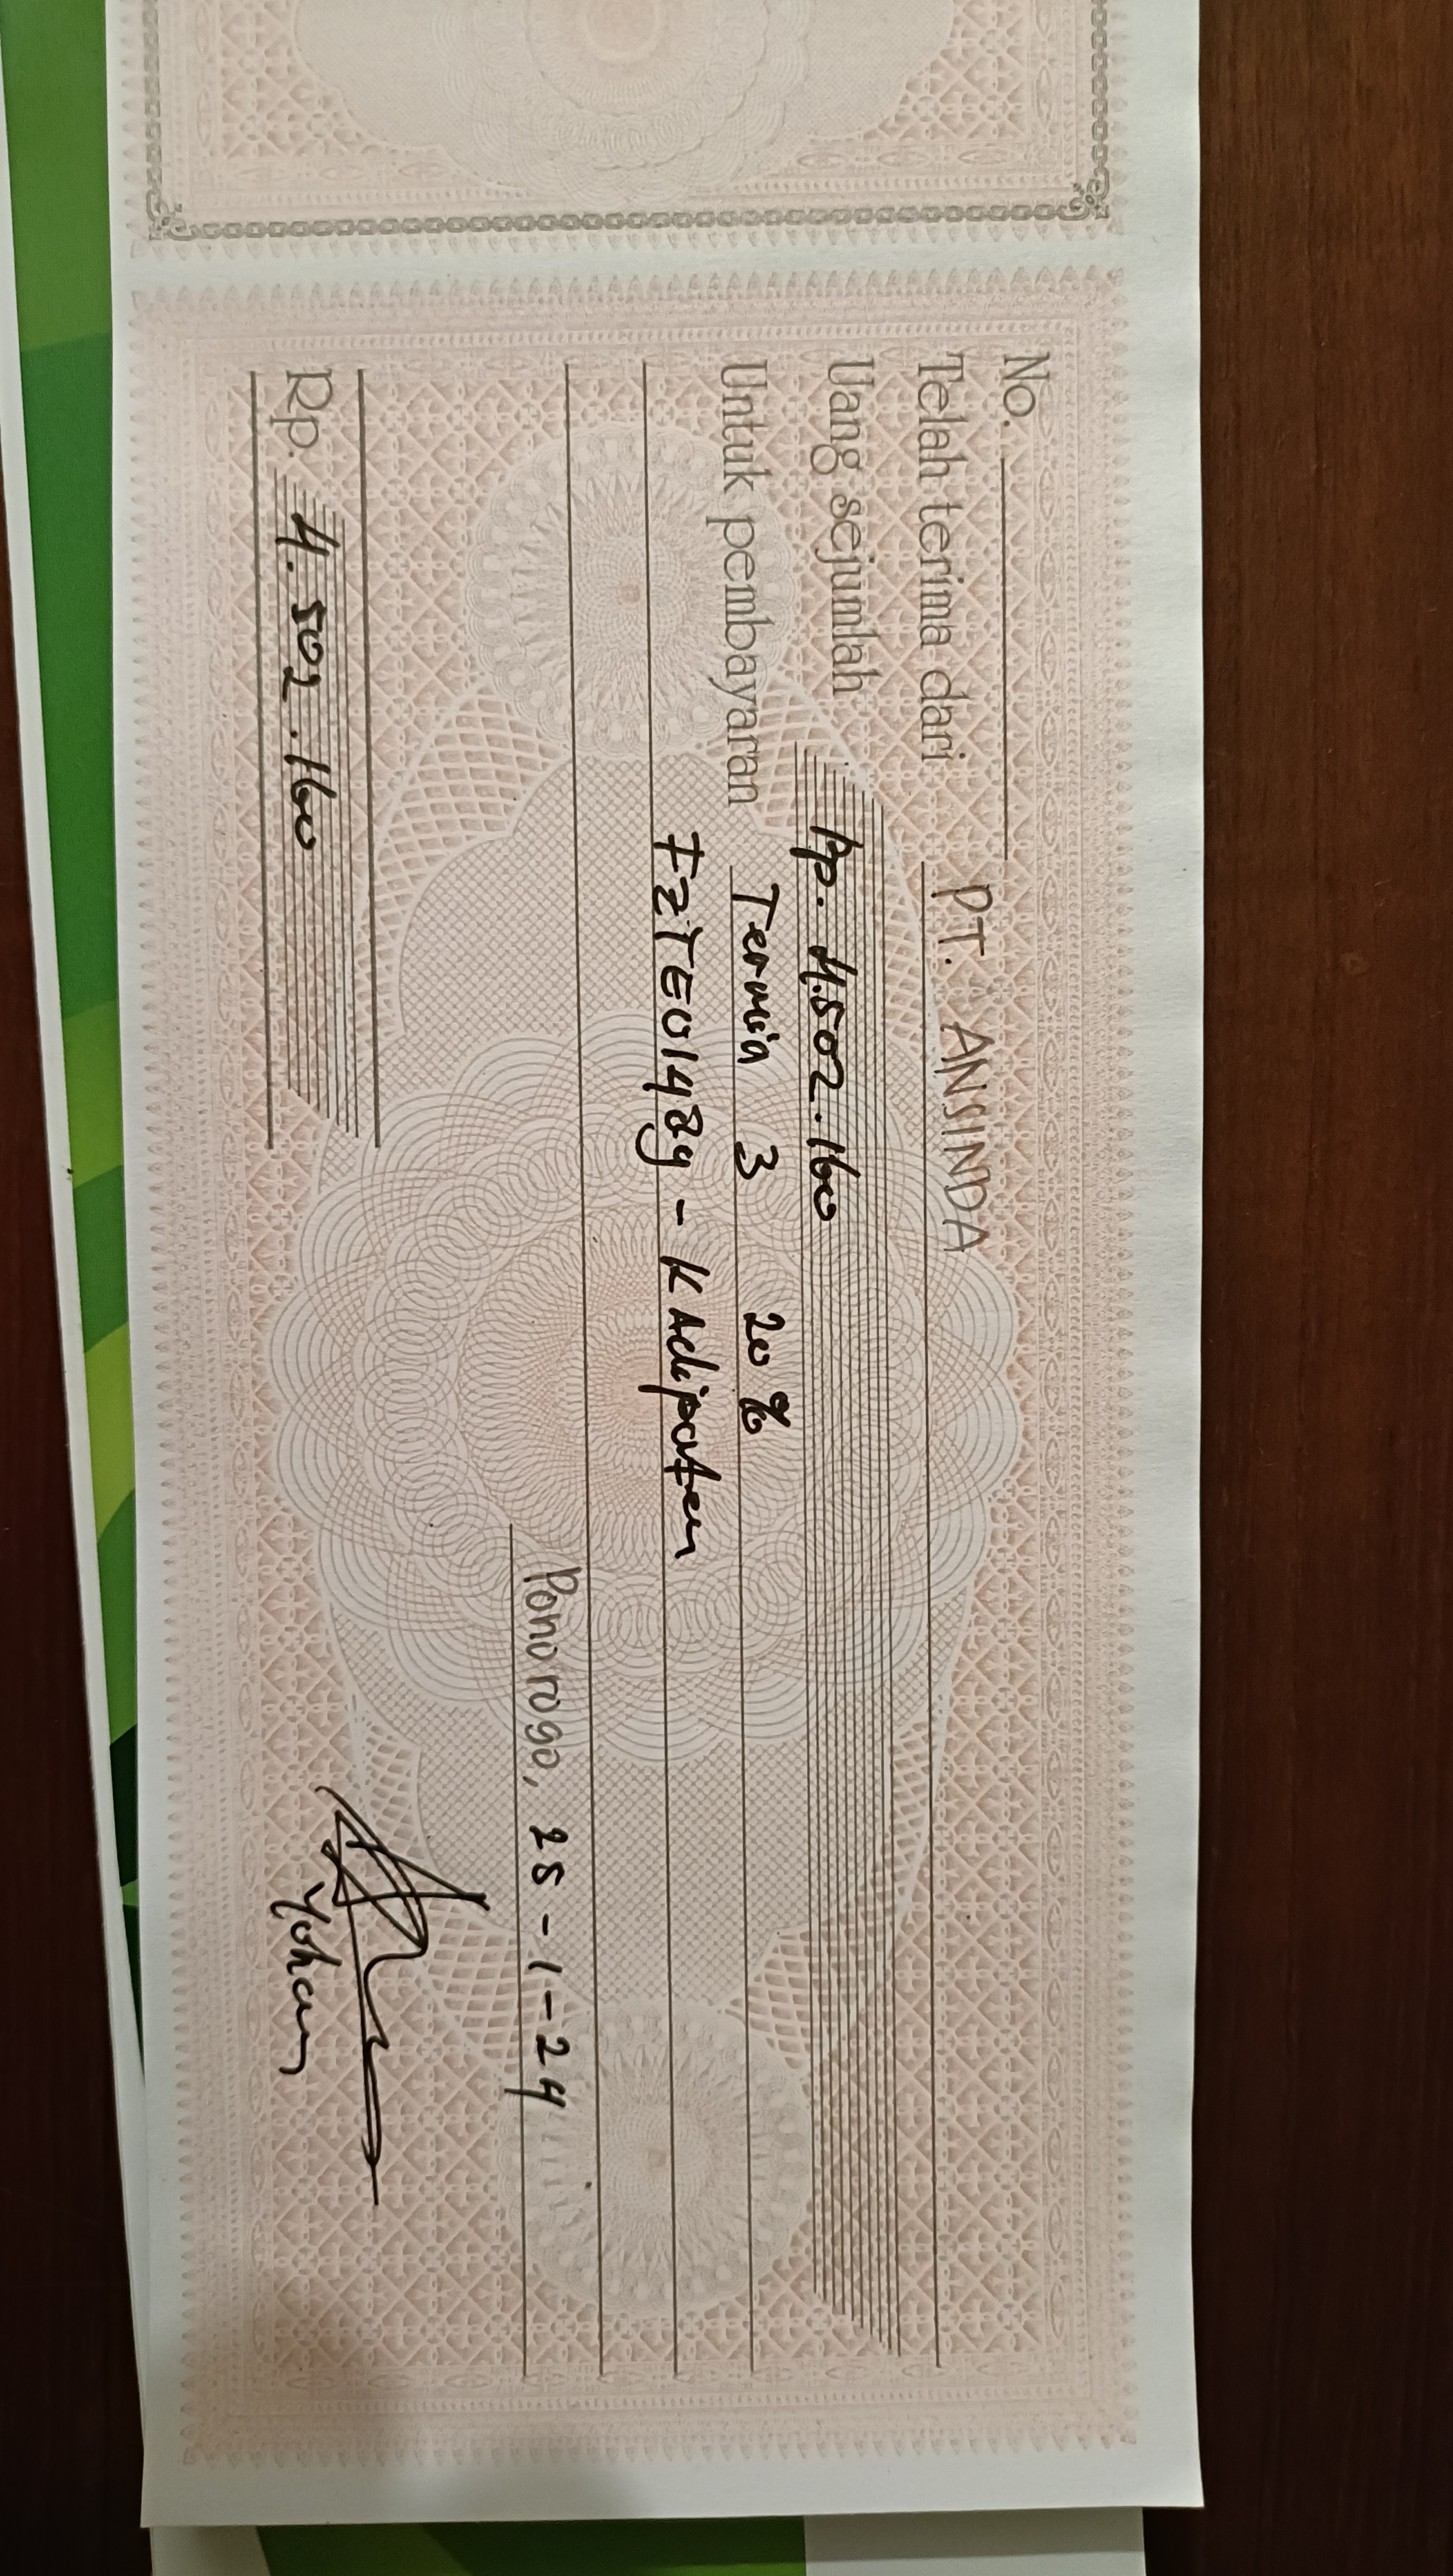 No.
Telah terima dari PT. ANSINDA
Uang sejumlah Rp. 4.502.160
Untuk pembayaran Termin 3 20%
FZTE01489 - KAdipaten
Ponorogo, 25-1-24
Rp. 4.502.160
Yohan